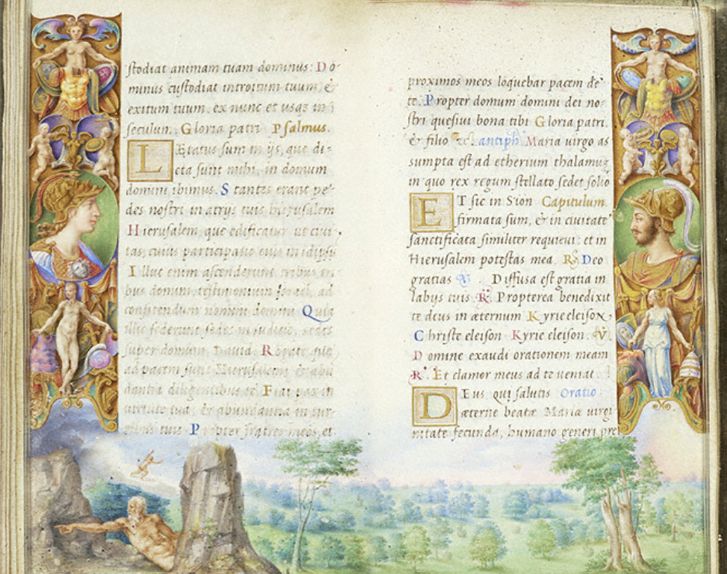 stodiat animam tuam dominus: Do
minus custodiat introitum tuum, &
exitum tuum, ex nunc et usq; in
seculum. Gloria patri Psalmus.
LÆtatus sum in ijs, quæ di-
cta sunt mihi, in domum
domini ibimus. Stantes erant pe-
des nostri in atrijs tuis Hierusalem
Hierusalem, quæ edificatur ut civi
tas, cuius participatio eius in idipsū
Illuc enim ascenderunt tribus tri
bus domini, testimonium Israel, ad
confitendum nomini domini. Quia
illic sederunt sedes in iudicio, sedes
super domum David. Rogate quæ
ad pacem sunt Hierusalem, & abū
dantia diligentibus te. Fiat pax in
virtute tua, & abundantia in tur-
ribus tuis. Propter fratres meos, et
proximos meos loquebar pacem de
te. Propter domum domini dei no-
stri quesivi bona tibi Gloria patri,
& filio antiph. Maria virgo as
sumpta est ad etherium thalamū
in quo rex regum stellato sedet solio
ET sic in Sion Capitulum.
firmata sum, & in civitate
sanctificata similiter requievi et in
Hierusalem potestas mea. R. Deo
gratias V. Diffusa est gratia in
labijs tuis R. Propterea benedixit
te deus in æternum Kyrie eleison
Christe eleison Kyrie eleison. V
Domine exaudi orationem meam
R. Et clamor meus ad te veniat.
DEus, qui salutis Oratio
æterne beatæ Mariæ virgi
nitate fecunda, humano generi pre